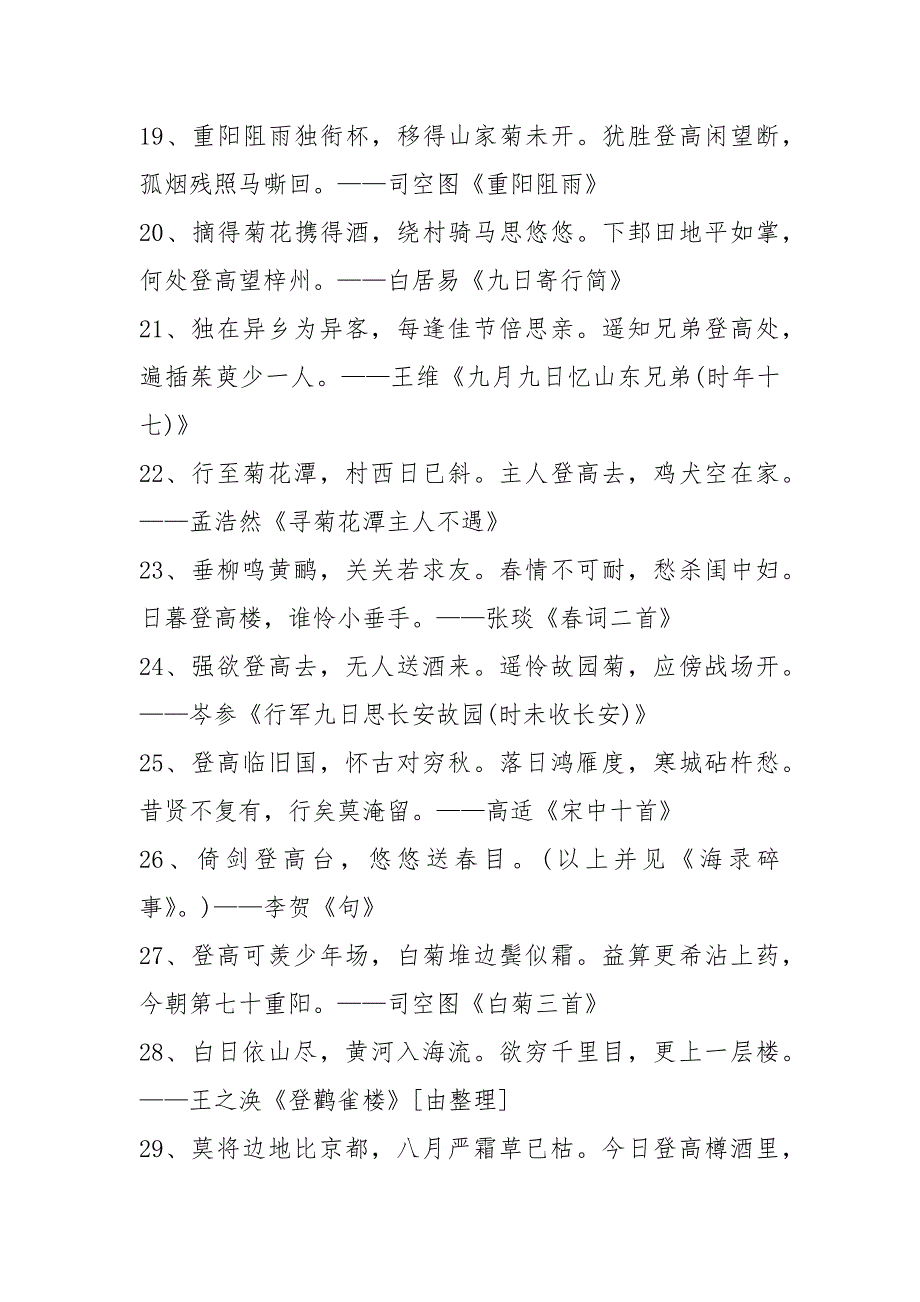 19、重阳阻雨独衔杯，移得山家菊未开。犹胜登高闲望断，
孤烟残照马嘶回。——司空图《重阳阻雨》
20、摘得菊花携得酒，绕村骑马思悠悠。下邽田地平如掌，
何处登高望梓州。——白居易《九日寄行简》
21、独在异乡为异客，每逢佳节倍思亲。遥知兄弟登高处，
遍插茱萸少一人。——王维《九月九日忆山东兄弟(时年十
七)》
22、行至菊花潭，村西日已斜。主人登高去，鸡犬空在家。
——孟浩然《寻菊花潭主人不遇》
23、垂柳鸣黄鹂，关关若求友。春情不可耐，愁杀闺中妇。
日暮登高楼，谁怜小垂手。——张琰《春词二首》
24、强欲登高去，无人送酒来。遥怜故园菊，应傍战场开。
——岑参《行军九日思长安故园(时未收长安)》
25、登高临旧国，怀古对穷秋。落日鸿雁度，寒城砧杵愁。
昔贤不复有，行矣莫淹留。——高适《宋中十首》
26、倚剑登高台，悠悠送春目。(以上并见《海录碎
事》。)——李贺《句》
27、登高可羡少年场，白菊堆边鬓似霜。益算更希沾上药，
今朝第七十重阳。——司空图《白菊三首》
28、白日依山尽，黄河入海流。欲穷千里目，更上一层楼。
——王之涣《登鹳雀楼》[由整理]
29、莫将边地比京都，八月严霜草已枯。今日登高樽酒里，